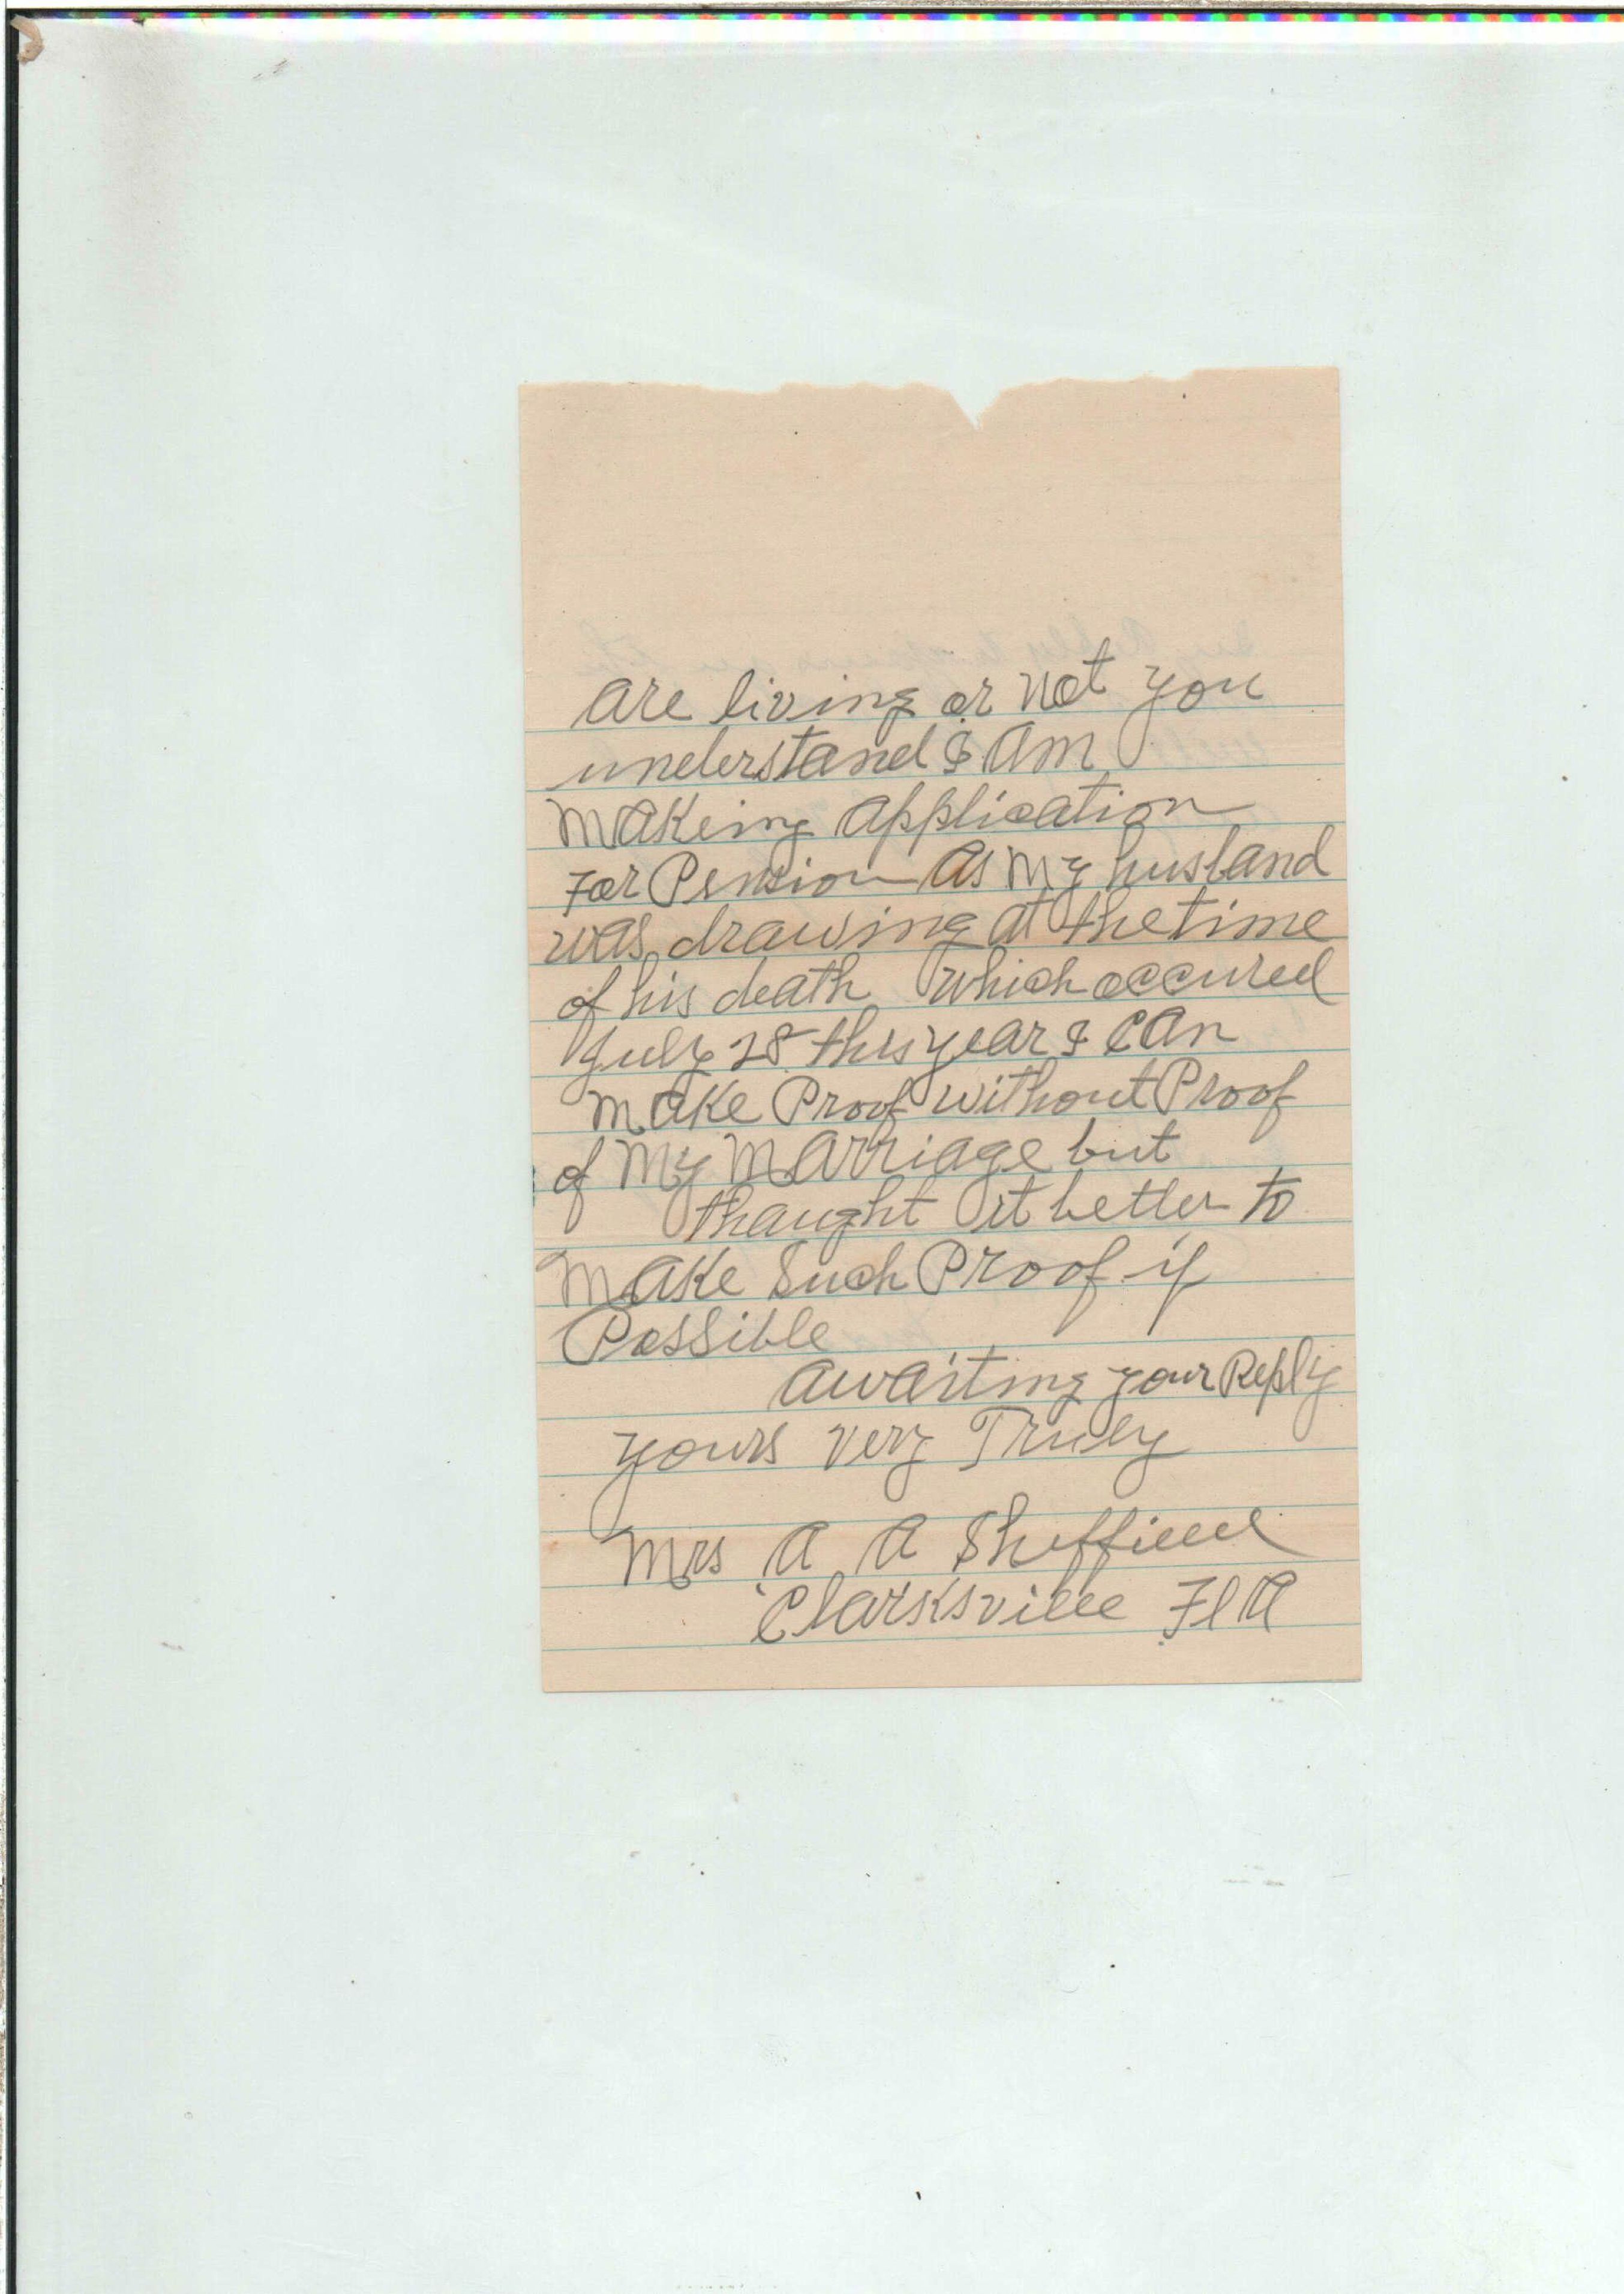 are living or not you
understand I am
making application
For Pension as my husband
was drawing at the time
of his death which occured
July 28 this year I can
make Proof without Proof
of My Marriage but
thaught it better to
make Such Proof if
Possible
awaiting your Reply
yours very Truly
Mrs A A Sheffield
Clarksville Fla